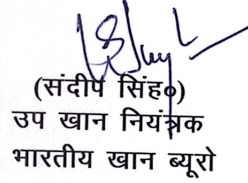 (संदीप सिंह०)
उप खान नियंत्रक
भारतीय खान ब्यूरो